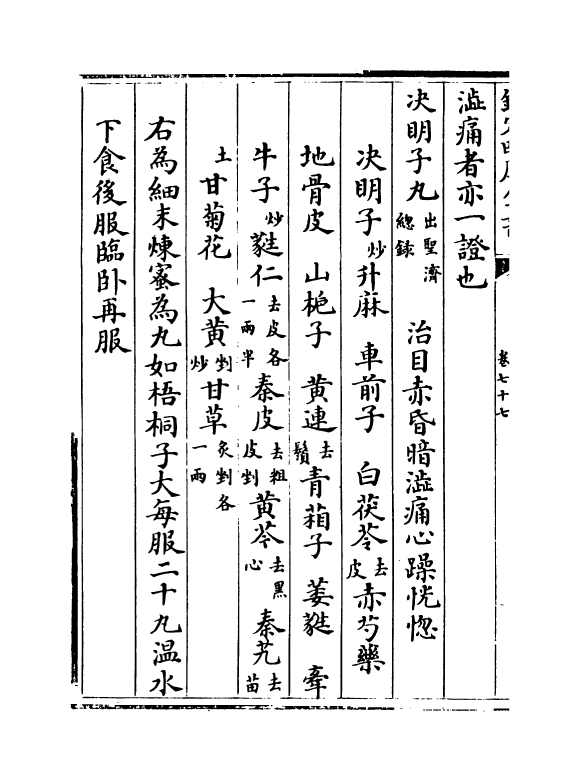 卷七十七
澁痛者亦一證也
决明子丸出聖濟總錄 治目赤昏暗澁痛心躁恍惚
决明子炒升麻 車前子 白茯苓去皮赤芍藥
地骨皮 山梔子 黄連去鬚青葙子 萎蕤 牽
牛子炒蕤仁去皮各一兩半秦皮去粗皮剉黄芩去黑心 秦艽去苗
土甘菊花 大黄剉炒甘草炙剉各一兩
右為細末煉蜜為丸如梧桐子大每服二十丸温水
下食後服臨卧再服